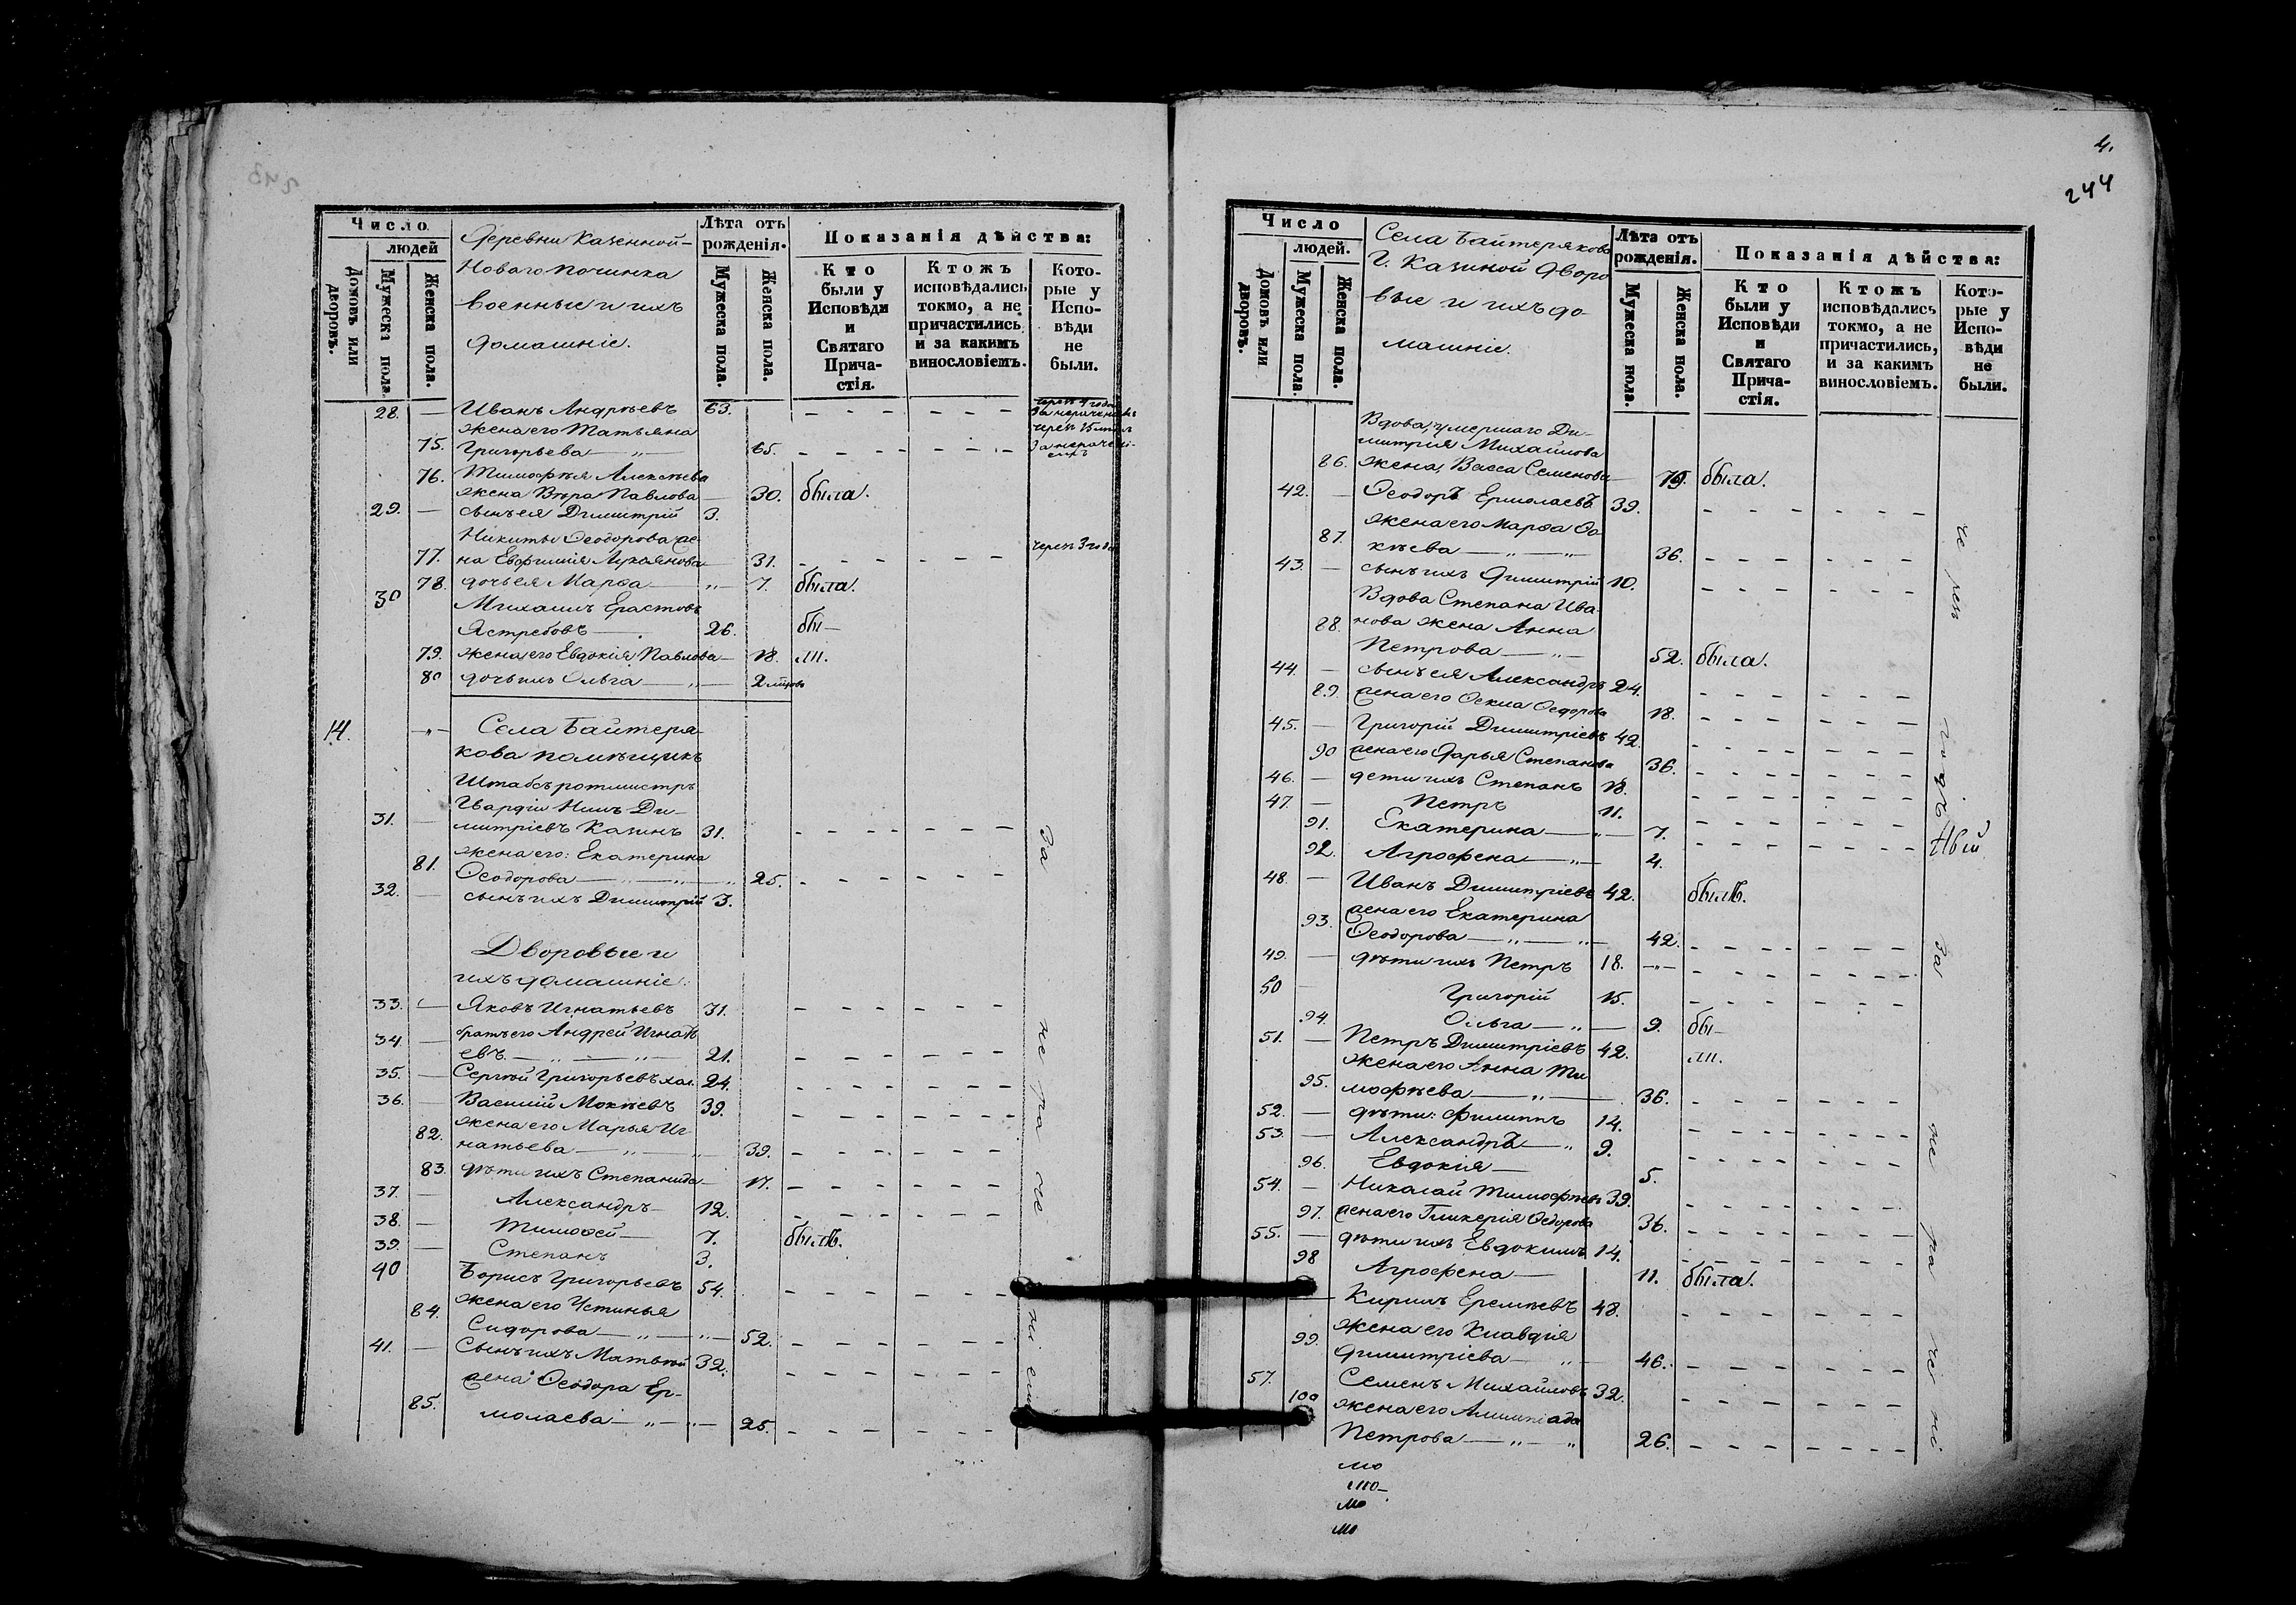 Число
людей
Домовъ или дворовъ.
Мужеска пола
Женска пола.
Деревни Казенной-
Новаго Починка
военные и ихъ
домашніе.
Лѣта отъ рожденія.
Мужеска пола.
Женска пола.
Показанія дѣйства:
Кто были у Исповѣди и Святаго Причастія.
Ктожъ исповѣдались токмо, а не причастились и за какимъ винословіемъ.
Которые у Исповѣди не были.
28. — Иванъ Андреевъ 63.
жена его Татьяна
75. Григорьева — 65.
76. Тимофея Алексѣева
жена Вѣра Павлова — 30. была.
29. — сынъ ея Димитрій 3.
Никиты Ѳеодорова же-
77. на Евфимія Лукоянова — 31. чрезъ 3 года
78. дочь ея Марѳа — 7. была.
30 Михаилъ Ерастовъ
Ястребовъ — 26. бы-
79. жена его Евдокія Павлова — 18. ли.
80 дочь ихъ Ольга — 2
14. Села Байтеря-
кова помѣщикъ
Штабсъ ротмистръ
Гвардіи Нилъ Ди-
31. — митріевъ Казинъ 31.
жена его: Екатерина
81. Ѳеодорова — 25.
32. — сынъ ихъ Димитрій 3.
Дворовые и
ихъ домашніе:
33. — Яковъ Игнатьевъ 31.
34. — братъ его Андрей Игнать
евъ — 21.
35. — Сергѣй Григорьевъ хол. 24.
36. — Василій Мокѣевъ 39.
жена его Марья Иг-
82. натьева — 39.
83. дѣти ихъ Степанида — 17.
37. — Александръ — 12.
38. — Тимоѳей — 7. былъ.
39. — Степанъ 3.
40 Борисъ Григорьевъ 54.
жена его Устинья
84. Сидорова — 52.
41. — Сынъ ихъ Матвѣй 32.
жена Ѳеодора Ер-
85. молаева — 25.
За нераченіемъ
4.
244
Число
людей.
Домовъ или дворовъ.
Мужеска пола.
Женска пола.
Села Байтерякова
Г. Казиной дворо
вые и ихъ до-
машніе.
Лѣта отъ рожденія.
Мужеска пола.
Женска пола.
Показанія дѣйства:
Кто были у Исповѣди и Святаго Причастія.
Ктожъ исповѣдались токмо, а не причастились, и за какимъ винословіемъ.
Которые у Исповѣди не были.
Вдова, умершаго Ди-
митрія Михайлова
86. жена, Васса Семенова — 79. была.
42. — Ѳеодоръ Ермолаевъ 39.
жена его Марѳа Ѳо
87. кѣева — 36.
43. — сынъ ихъ Димитрій 10.
Вдова Степана Ива
88. нова жена Анна
Петрова — 52. была.
44. — сынъ ея Александръ 24.
89. жена его Ѳекла Ѳедорова 18.
45. — Григорій Димитріевъ 42.
90 жена его Дарья Степанова 36.
46. — дети ихъ Степанъ 18.
47. — Петръ 11.
91. Екатерина — 7.
92. Агрофена — 4.
48. — Иванъ Димитріевъ 42. былъ.
жена его Екатерина
93. Ѳеодорова — 42.
49. — дѣти ихъ Петръ 18.
50 — Григорій 15.
94. Ольга — 9. бы-
51. — Петръ Димитріевъ 42. ли.
жена его Анна Ти
95. мофѣева — 36.
52. — дѣти: Филиппъ 14.
53. — Александръ — 9.
96. Евдокія — 5.
54. — Николай Тимофѣевъ 39.
97. жена его Гликерія Ѳедорова 36.
55. — дѣти ихъ Евдокимъ 14.
98 Агрофена — 11. была.
Кирилъ Еремѣевъ 48.
жена его Клавдія
99. Димитріева — 46.
57. Семенъ Михайловъ 32.
100 жена его Алимпіада
Петрова — 26.
мо
мо
мо